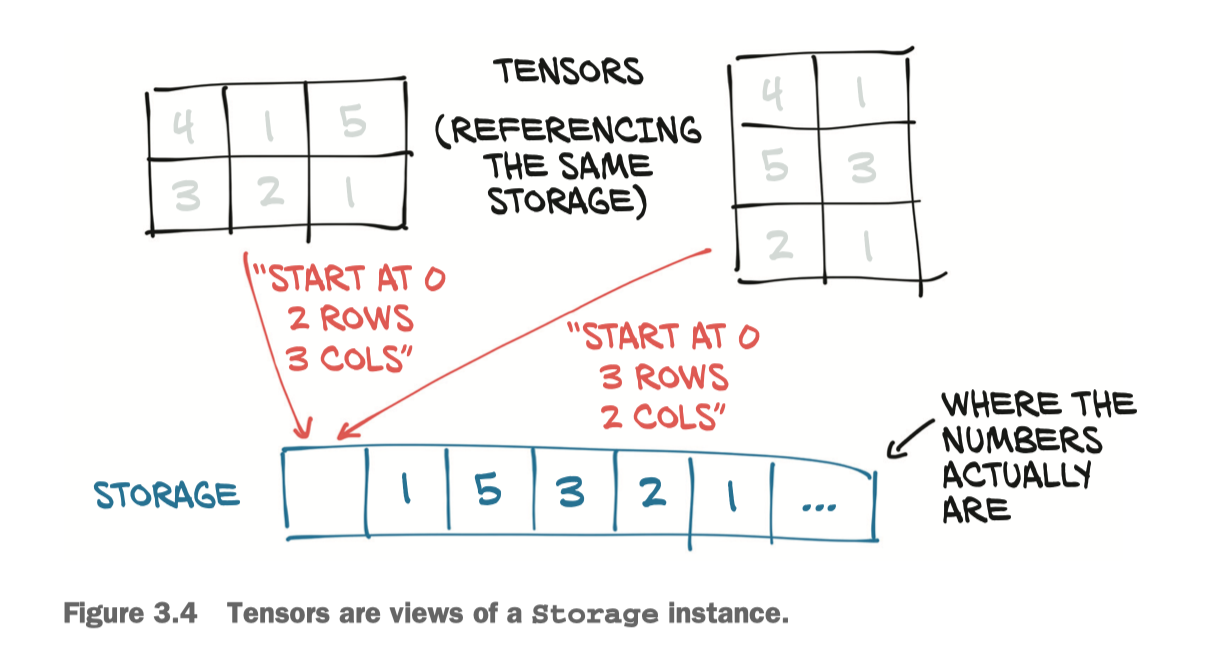 4 1 5
3 2 1
TENSORS
(REFERENCING
THE SAME
STORAGE)
4 1
5 3
2 1
"START AT 0
2 ROWS
3 COLS"
"START AT 0
3 ROWS
2 COLS"
WHERE THE
NUMBERS
ACTUALLY
ARE
STORAGE
1 5 3 2 1 ...
Figure 3.4 Tensors are views of a Storage instance.